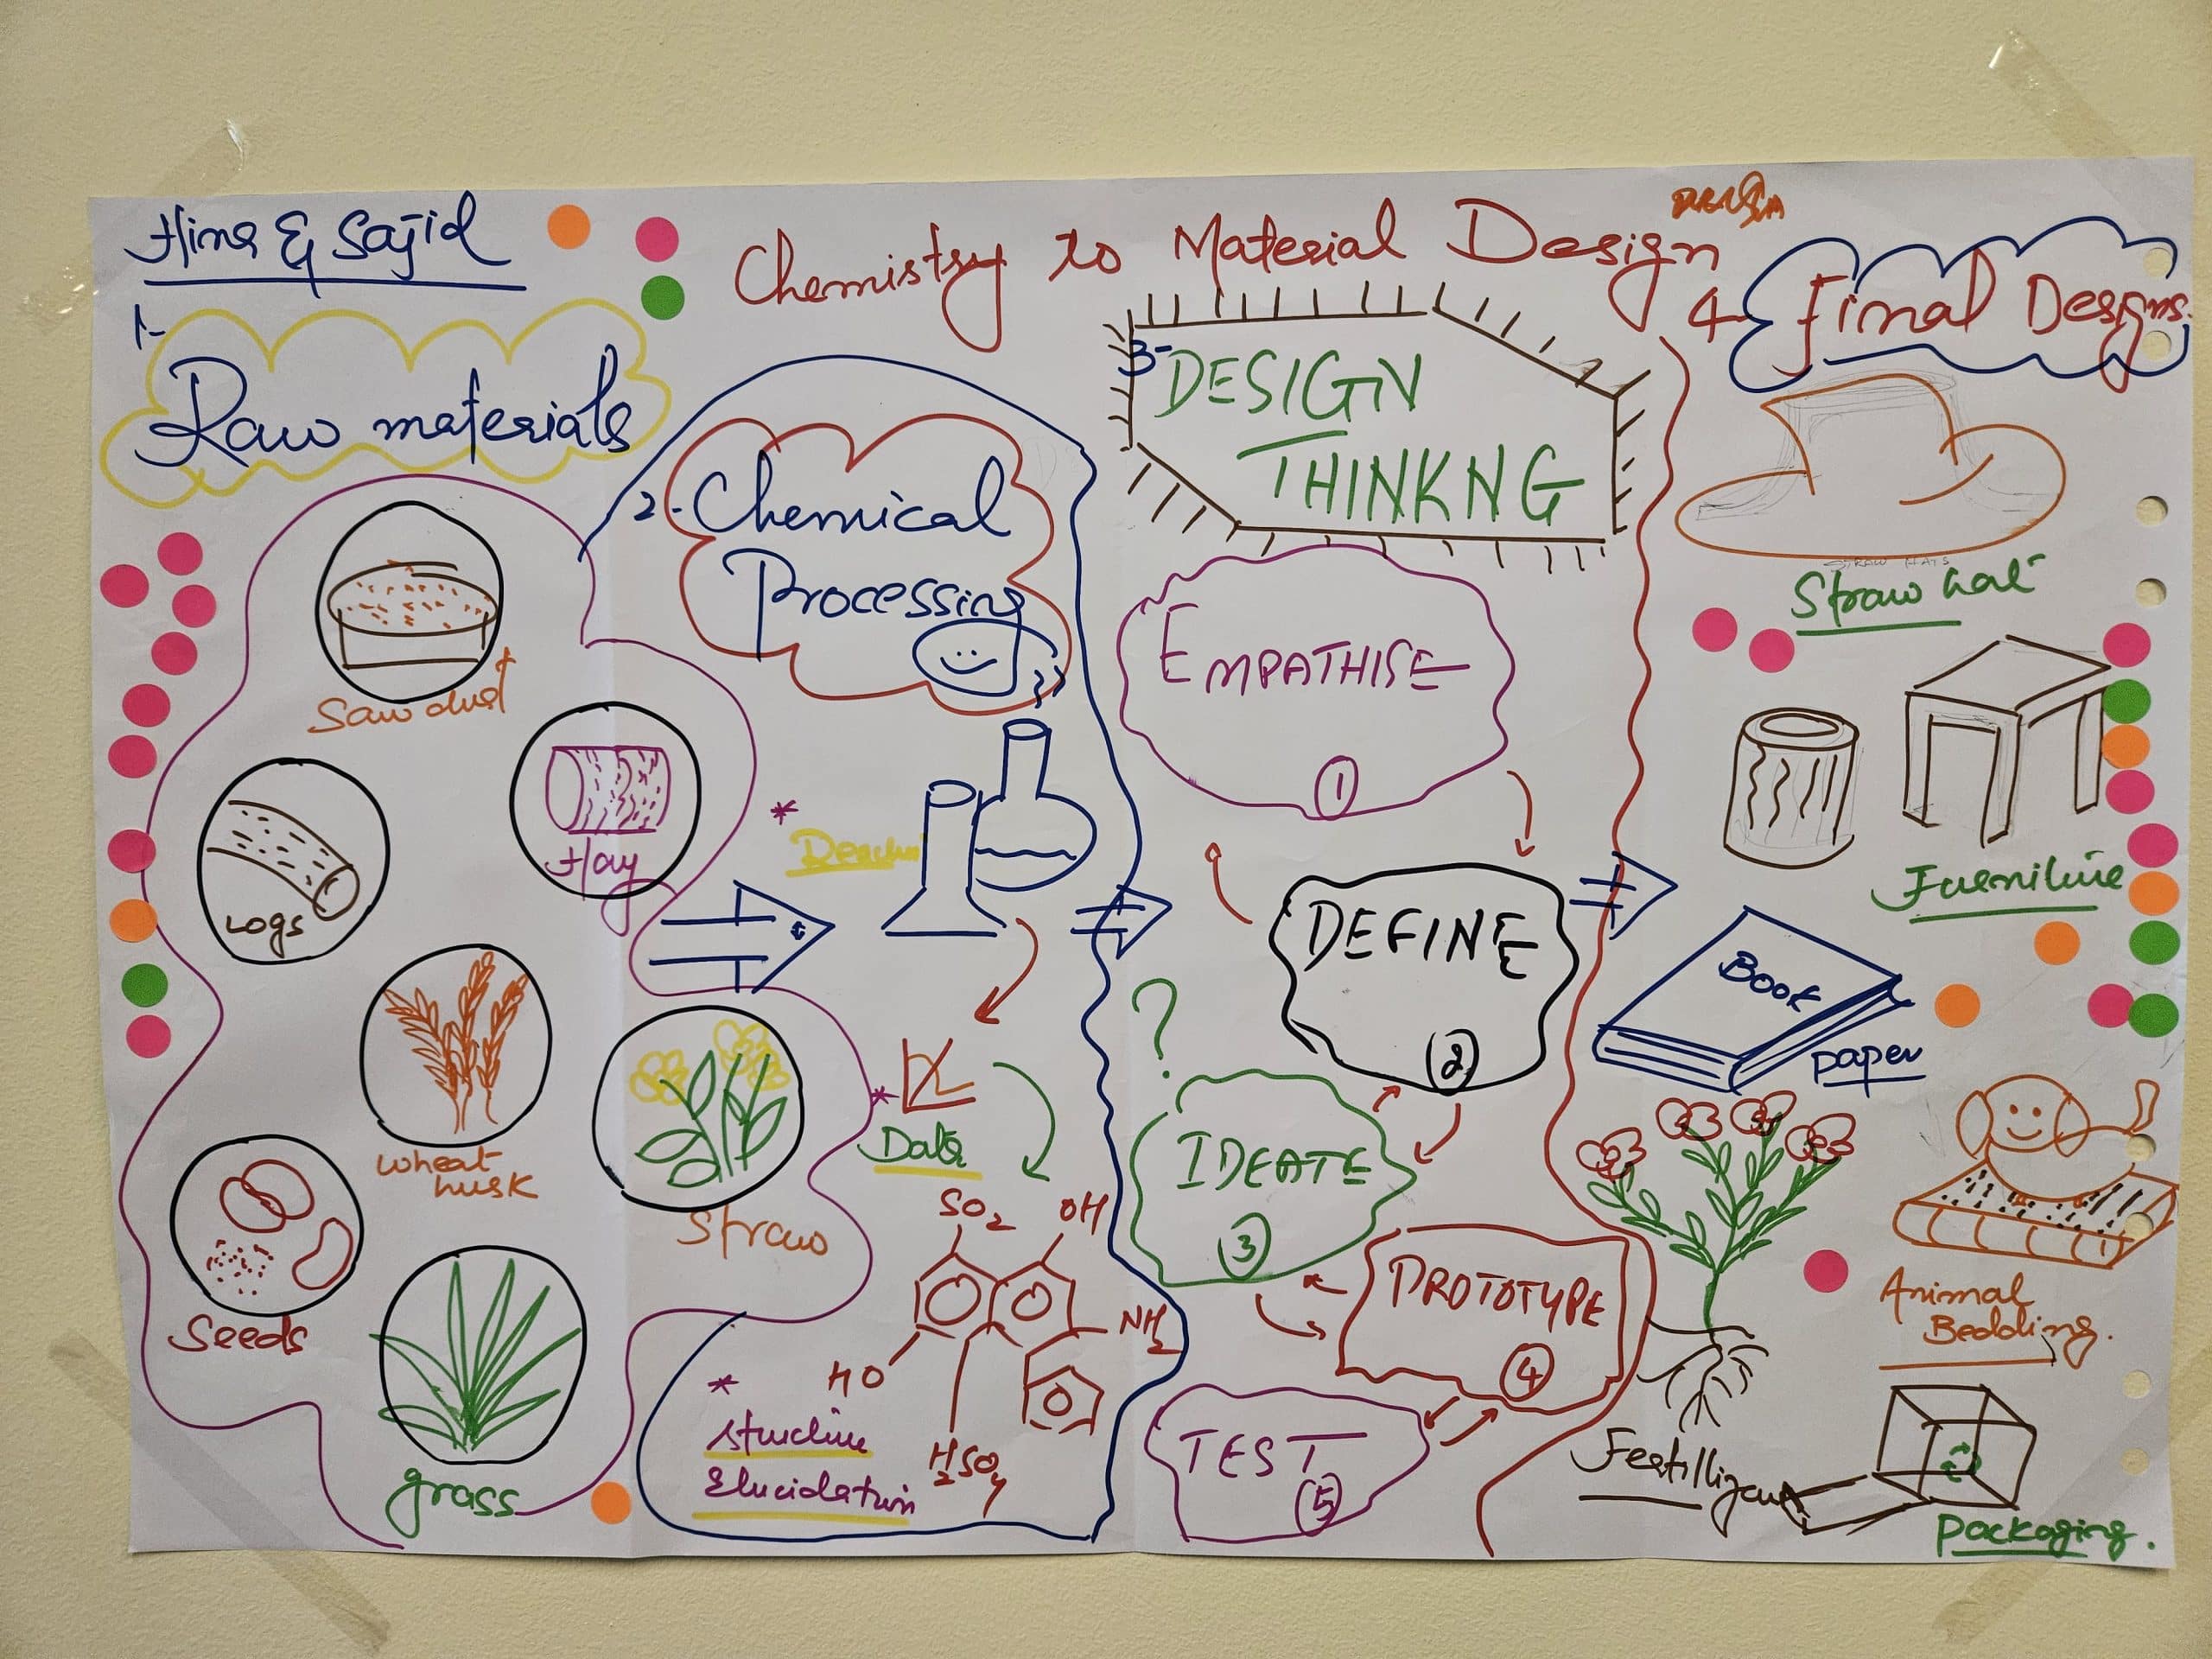 Hina & Sajid
Chemistry to Material Design
1- Raw materials
Saw dust
Hay
Logs
Wheat
husk
Straw
Seeds
grass
2- Chemical
Processing
Data
SO2
OH
NH2
HO
H2SO4
Structure
Elucidation
3- DESIGN
THINKNG
EMPATHISE
1
DEFINE
2
?
IDEATE
3
PROTOTYPE
4
TEST
5
4 Final Designs.
STRAW HATS
Straw hat
Furniture
BOOK
paper
Animal
Bedding.
Fertilizer
Packaging.